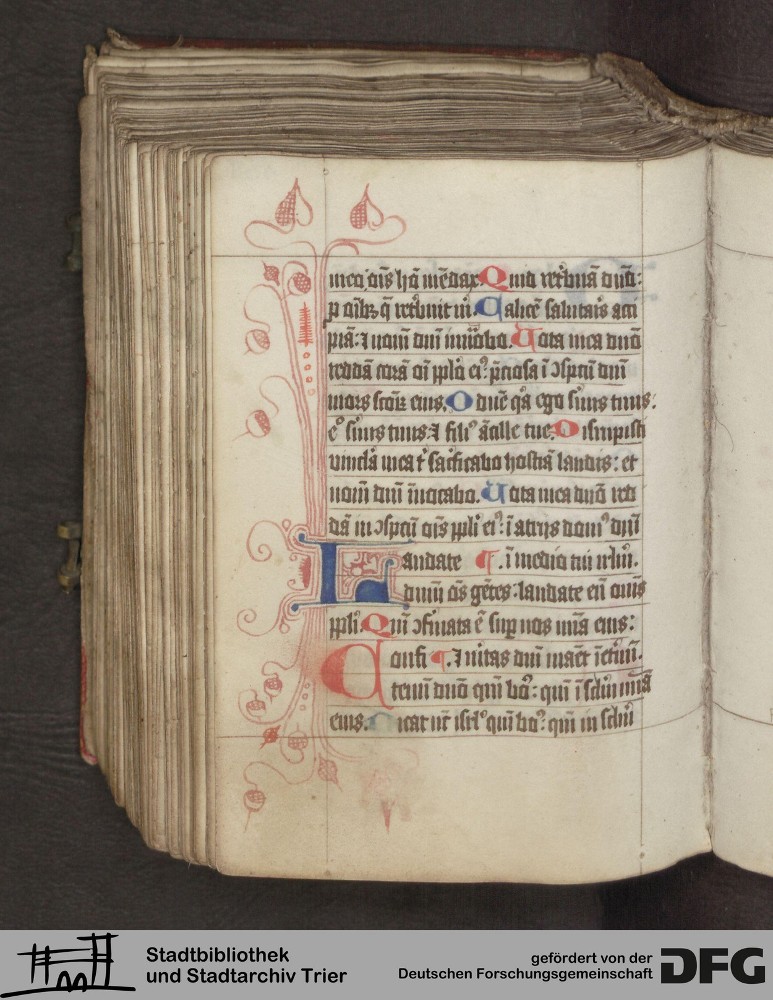 meo: oīs hō mēdax. Quid ret'buā dn̄o:
p oībꝫ q̄ ret'buit m̄. Calicē salutaīs acci
piā: ⁊ nom̄ dn̄i īuocabo. Uota mea dn̄o
reddā corā oī pplo ei⁹: p̄ciosa ī ɔspcū dn̄i
mors scōꝝ eius. O dn̄e q̄a ego su̅us tuus:
e° su̅us tuus ⁊ fili⁹ ācille tue. Disrupisti
vincla mea t' sac̄ficabo hostiā laudis: et
nom̄ dn̄i īuocabo. Uota mea dn̄o red
dā in ɔspcū oīs ppli ei⁹: ī atrijs dom⁹ dn̄i
Laudate ¶. ī medio tui irlm̄.
dn̄m oēs gētes: laudate eū om̄s
ppli. Qm̄ ɔfirmata ē sup nos mīa eius:
Confi ¶. ⁊ uitas dn̄i manet īet'nū.
temī dn̄o qm̄ bo⁹: qm̄ ī sclm̄ mīa
eius. Dicat nc̄ isrl' qm̄ bo⁹: qm̄ in sclm̄
Stadtbibliothek
und Stadtarchiv Trier
gefördert von der
Deutschen Forschungsgemeinschaft DFG